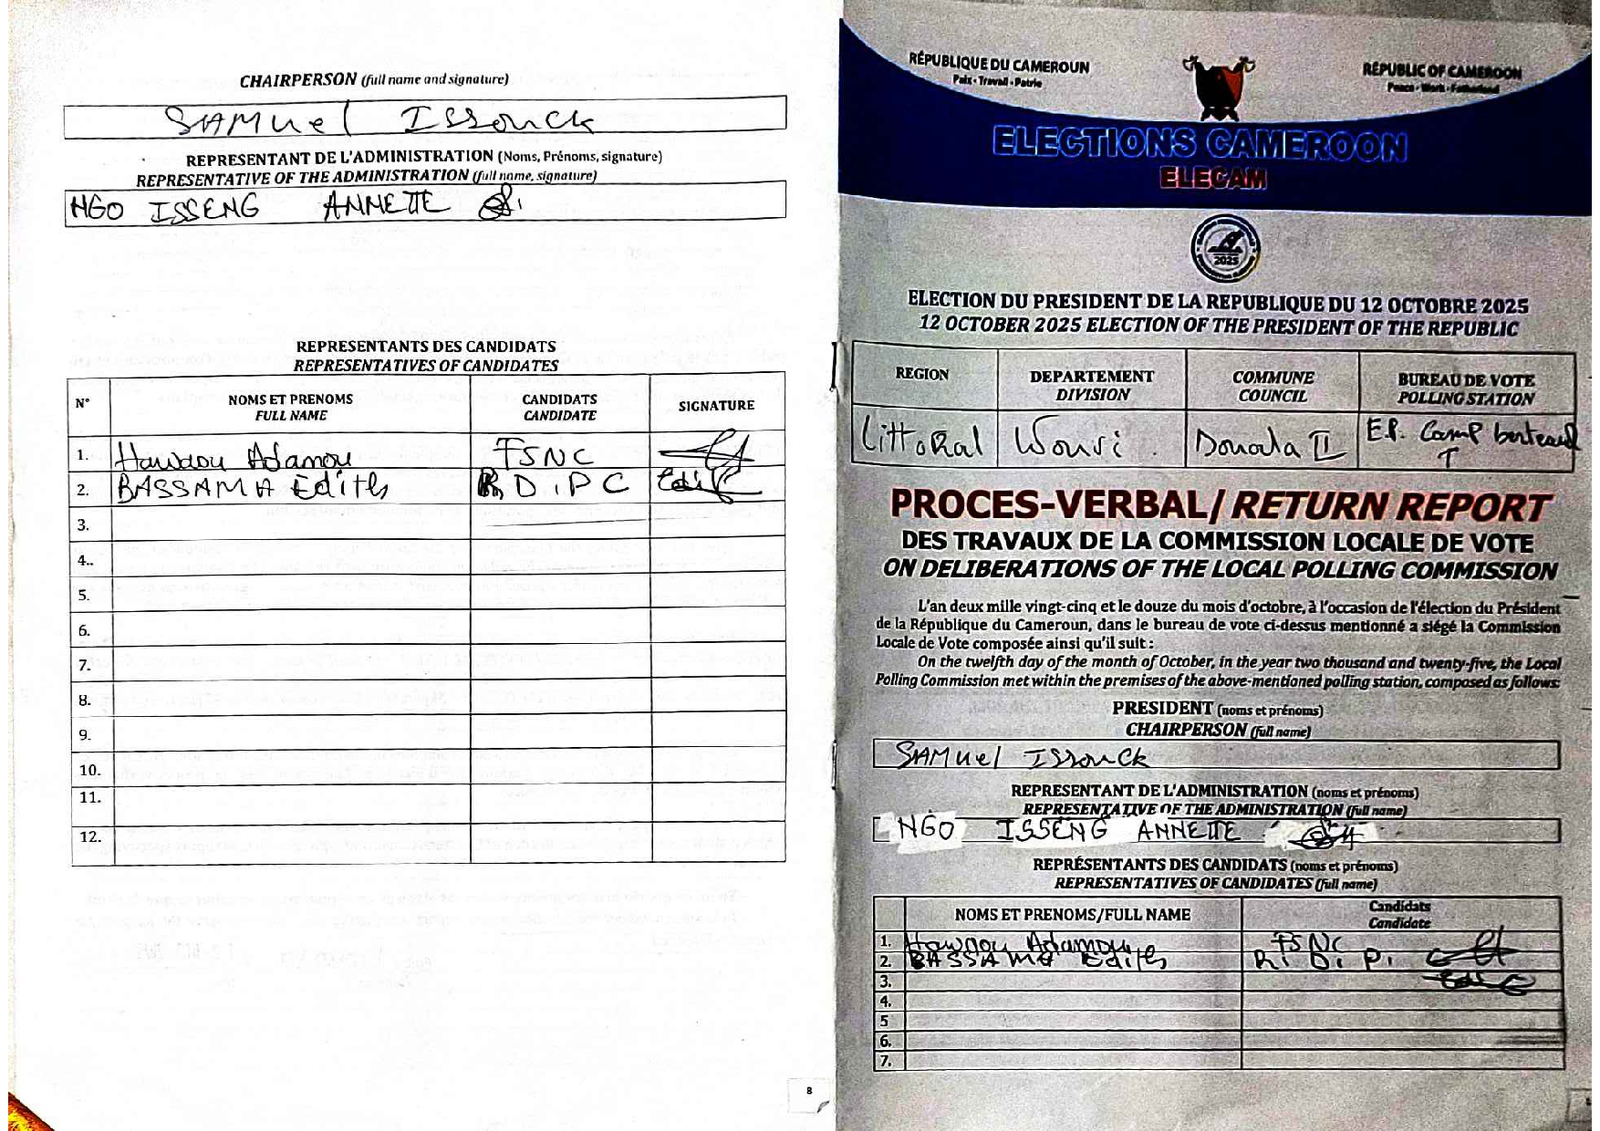 CHAIRPERSON (full name and signature)
SAMUel ISSouck
REPRESENTANT DE L'ADMINISTRATION (Noms, Prénoms, signature)
REPRESENTATIVE OF THE ADMINISTRATION (full name, signature)
NGO ISSENG ANNETTE
REPRESENTANTS DES CANDIDATS
REPRESENTATIVES OF CANDIDATES
N° NOMS ET PRENOMS FULL NAME CANDIDATS CANDIDATE SIGNATURE
1. Hawaou Adamou FSNC
2. BASSAMA Edith R.D.P.C
3.
4..
5.
6.
7.
8.
9.
10.
11.
12.
8
RÉPUBLIQUE DU CAMEROUN
Paix - Travail - Patrie
REPUBLIC OF CAMEROON
Peace - Work - Fatherland
ELECTIONS CAMEROON
ELECAM
2025
ELECTION DU PRESIDENT DE LA REPUBLIQUE DU 12 OCTOBRE 2025
12 OCTOBER 2025 ELECTION OF THE PRESIDENT OF THE REPUBLIC
REGION DEPARTEMENT DIVISION COMMUNE COUNCIL BUREAU DE VOTE POLLING STATION
LittoRal Wouri Douala II E.P. Camp berteaud
PROCES-VERBAL/ RETURN REPORT
DES TRAVAUX DE LA COMMISSION LOCALE DE VOTE
ON DELIBERATIONS OF THE LOCAL POLLING COMMISSION
L'an deux mille vingt-cinq et le douze du mois d'octobre, à l'occasion de l'élection du Président
de la République du Cameroun, dans le bureau de vote ci-dessus mentionné a siégé la Commission
Locale de Vote composée ainsi qu'il suit :
On the twelfth day of the month of October, in the year two thousand and twenty-five, the Local
Polling Commission met within the premises of the above-mentioned polling station, composed as follows:
PRESIDENT (noms et prénoms)
CHAIRPERSON (full name)
SAMUel ISSouck
REPRESENTANT DE L'ADMINISTRATION (noms et prénoms)
REPRESENTATIVE OF THE ADMINISTRATION (full name)
NGO ISSENG ANNETTE
REPRÉSENTANTS DES CANDIDATS (noms et prénoms)
REPRESENTATIVES OF CANDIDATES (full name)
NOMS ET PRENOMS/FULL NAME Candidats Candidate
1. Hawaou Adamou FSNC
2. BASSAMA Edith R.D.P.C
3.
4.
5
6.
7.